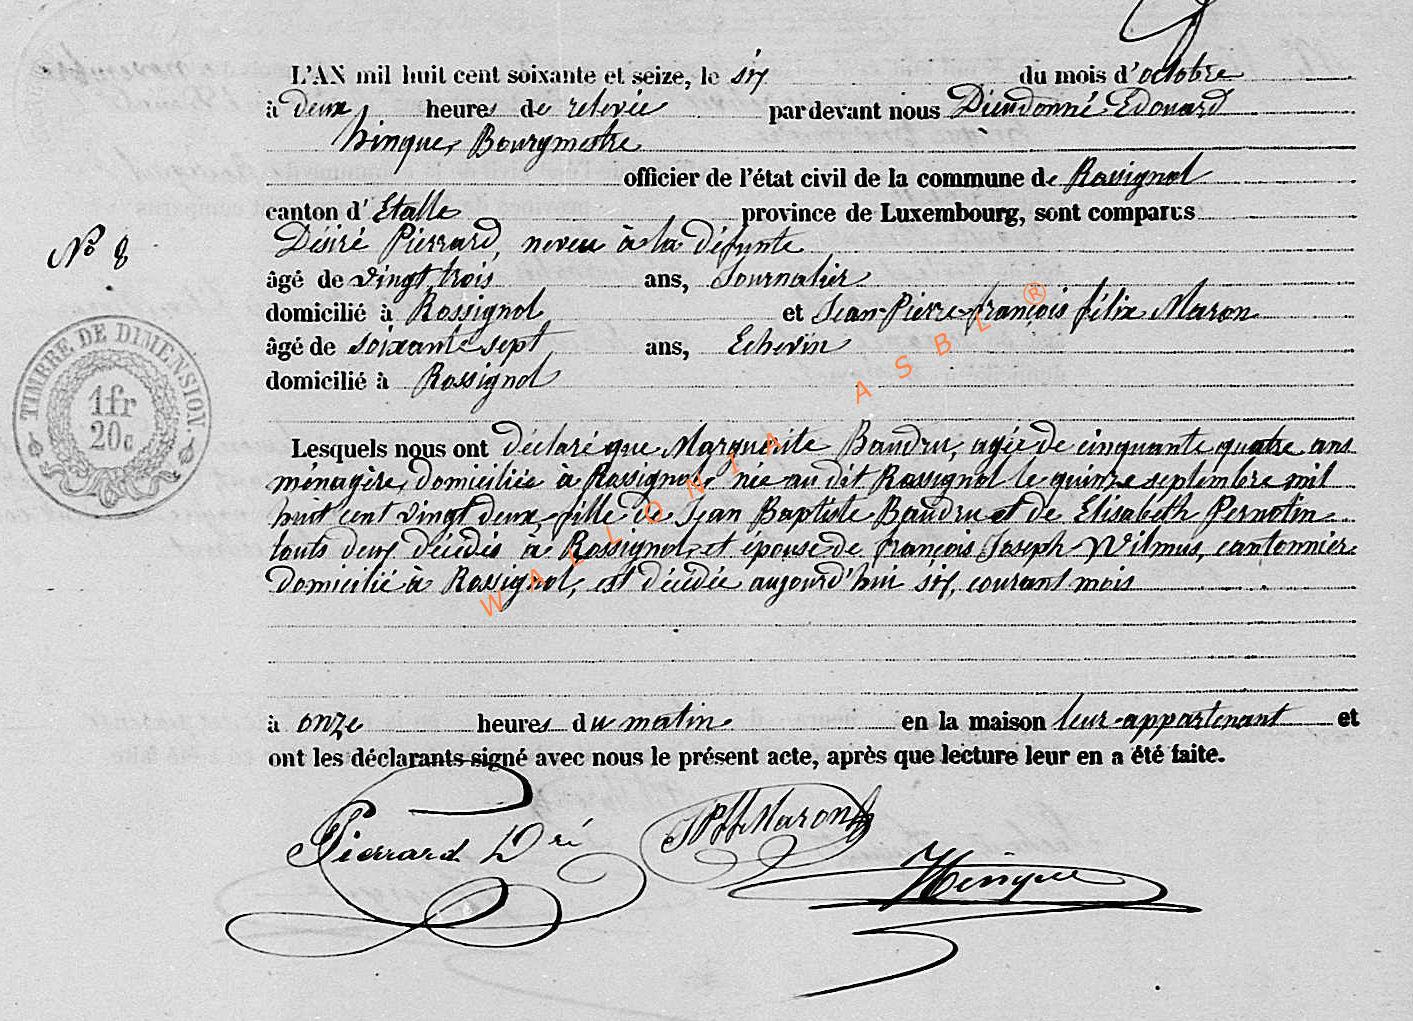 L'AN mil huit cent soixante et seize, le six du mois d'octobre
à deux heures de relevée pardevant nous Dieudonné Edouard
hinque, Bourgmestre
officier de l'état civil de la commune de Rossignol
canton d'Etalle province de Luxembourg, sont comparus
Désiré Pierrard, neveu à la défunte
N° 8
âgé de vingt trois ans, Journalier
domicilié à Rossignol et Jean-Pierre-françois félix Maron
âgé de soixante sept ans, Echevin
domicilié à Rossignol
TIMBRE DE DIMENSION
1fr
20c
Lesquels nous ont déclaré que Marguerite Baudru, agée de cinquante quatre ans
ménagère, domiciliée à Rossignol, née au dit Rossignol le quinze septembre mil
huit cent vingt deux, fille de Jean Baptiste Baudru et de Elisabeth Pernotin
touts deux décédés à Rossignol, et épouse de françois Joseph Wilmus, cantonnier
domicilié à Rossignol, est décédée aujourd'hui six, courant mois
WALLONIA ASBL ®
à onze heures du matin en la maison leur appartenant et
ont les déclarants signé avec nous le présent acte, après que lecture leur en a été faite.
Pierrard Dré JPffMaron Hinque